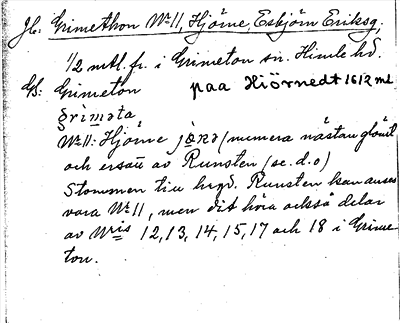 Jb: Grimethon Nr 11, Hjörne, Esbjörn Eriksg.
1/2 mtl. fr. i Grimeton sn. Himle hd.
Gs. Grimeton paa Hiörnedt 1612 ml
grìməta
Nr 11: Hjörne (numera nästan glömt
och ersatt av Runsten (se. d. o)
Stommen till hrgd. Runsten kan anses
vara Nr 11, men dit höra också delar
av Nris 12, 13, 14, 15, 17 och 18 i Grime-
ton.